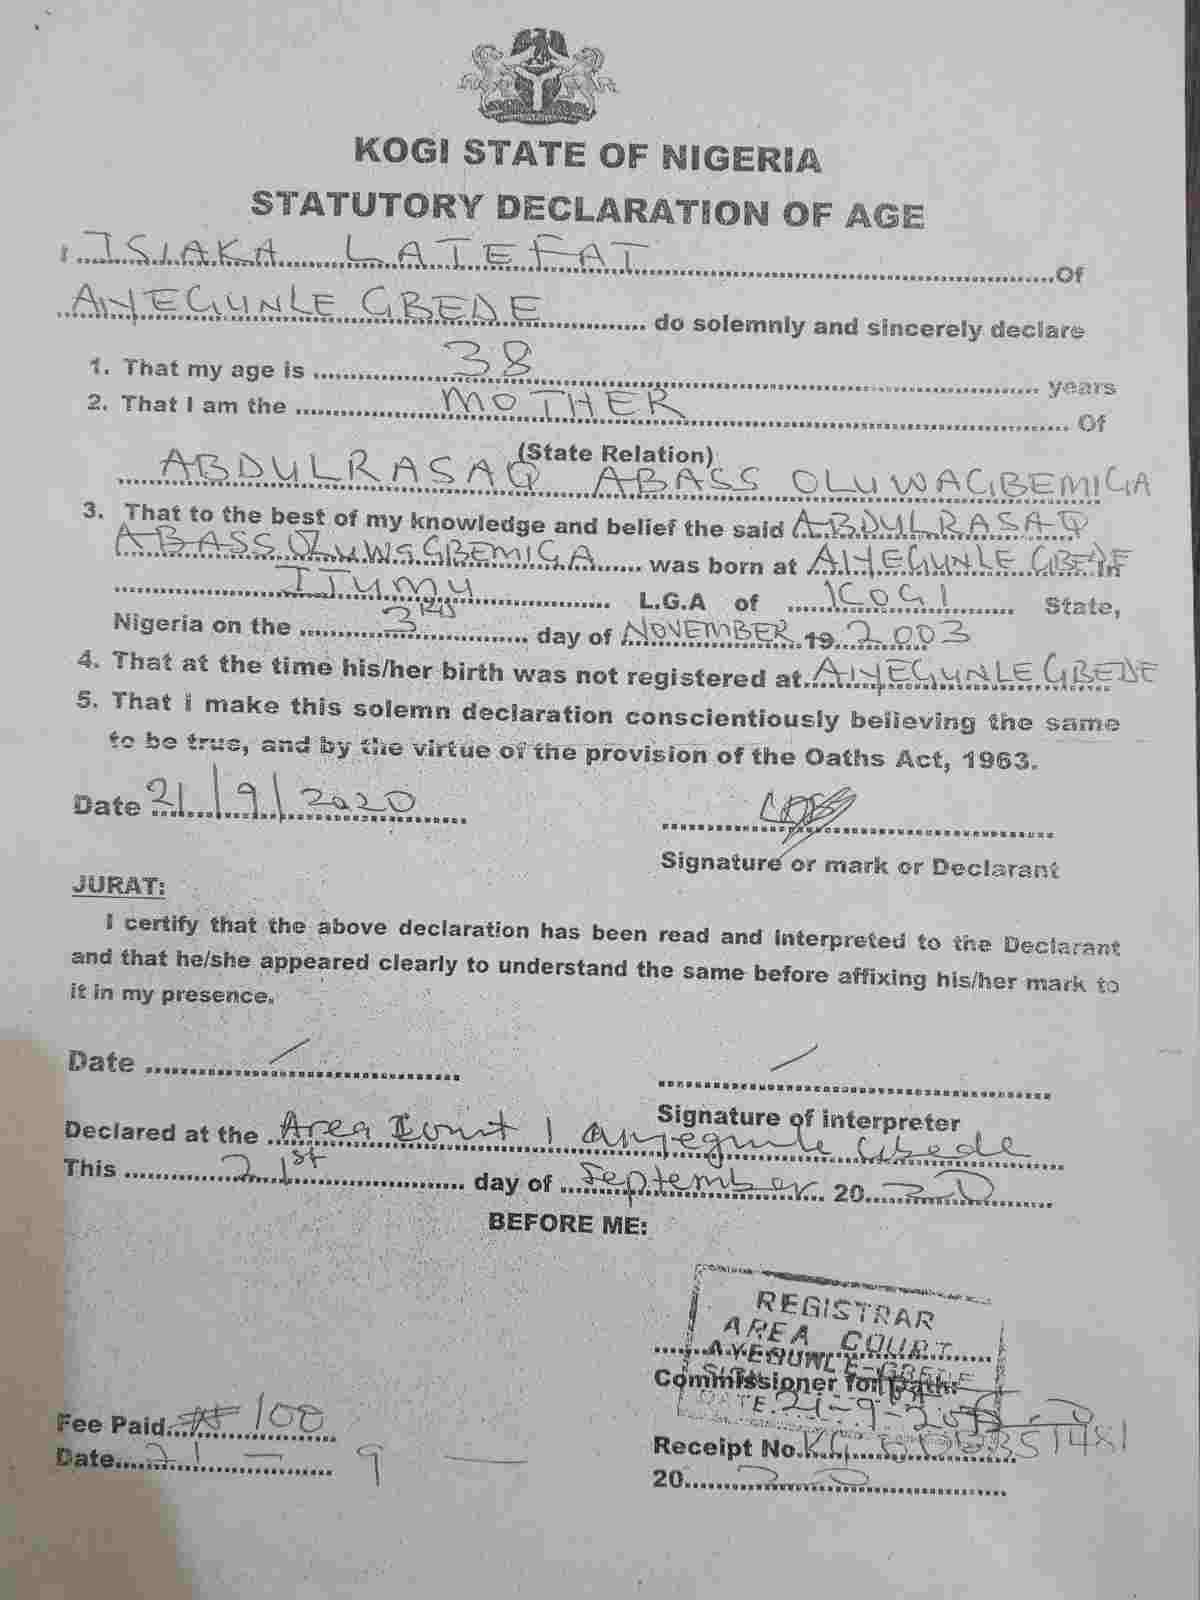 KOGI STATE OF NIGERIA
STATUTORY DECLARATION OF AGE
I ISIAKA LATEFAT Of
AIYEGUNLE GBEDE do solemnly and sincerely declare
1. That my age is 38 years
2. That I am the MOTHER Of
(State Relation)
ABDULRASAQ ABASS OLUWAGBEMIGA
3. That to the best of my knowledge and belief the said ABDULRASAQ
ABASS OLUWAGBEMIGA was born at AIYEGUNLE GBEDE in
IJUMU L.G.A of KOGI State,
Nigeria on the 3RD day of NOVEMBER 19 2003
4. That at the time his/her birth was not registered at AIYEGUNLE GBEDE
5. That I make this solemn declaration conscientiously believing the same
to be true, and by the virtue of the provision of the Oaths Act, 1963.
Date 21/9/2020
Signature or mark or Declarant
JURAT:
I certify that the above declaration has been read and interpreted to the Declarant
and that he/she appeared clearly to understand the same before affixing his/her mark to
it in my presence.
Date /
/
Signature of interpreter
Declared at the Area Court 1 Aiyegunle Gbede
This 21st day of September 20 20
BEFORE ME:
REGISTRAR
AREA COURT
AYEGUNLE-GBEDE
Commissioner for Oath:
DATE: 21-9-2020
Fee Paid ₦100
Date 21 - 9 -
Receipt No.
20 20